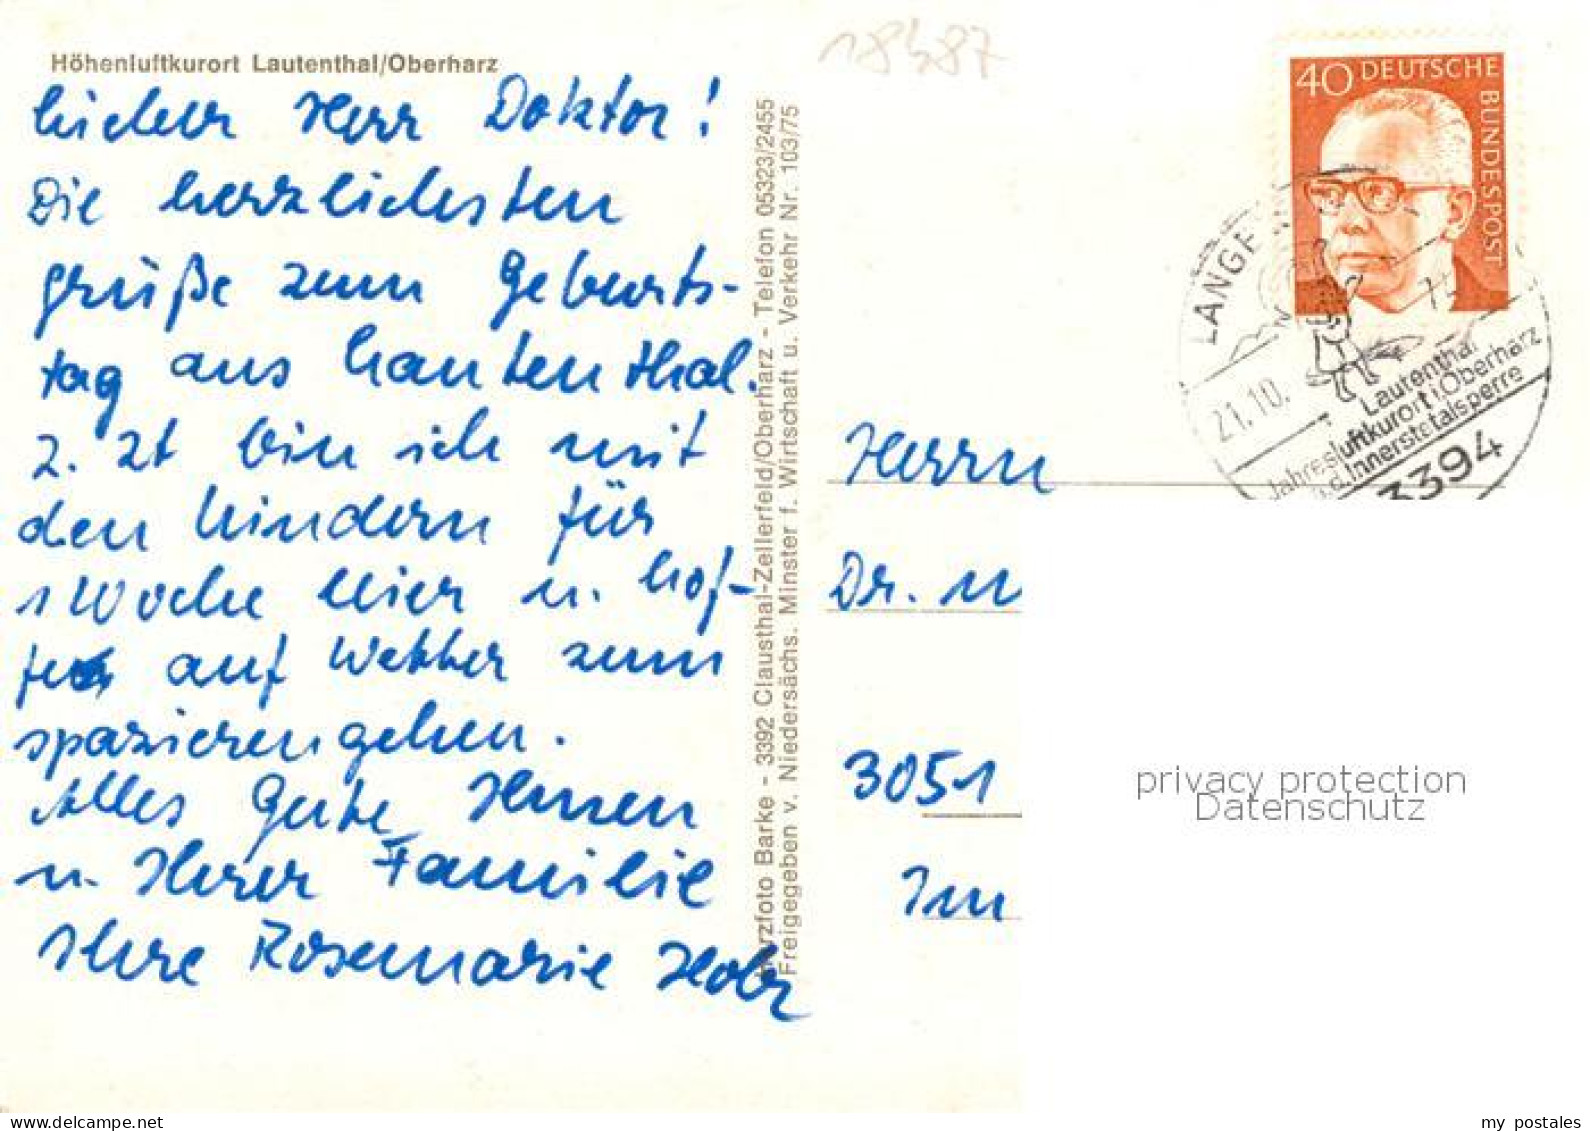 18487
Höhenluftkurort Lautenthal/Oberharz
Lieber Herr Doktor!
Die herzlichsten
Grüße zum Geburts-
tag aus Lautenthal.
Z. Zt bin ich mit
den Kindern für
1 Woche hier u. hof-
fe auf Wetter zum
spazierengehen.
Alles Gute Ihnen
u. Ihrer Familie
Ihre Rosemarie
Harzfoto Barke - 3392 Clausthal-Zellerfeld/Oberharz - Telefon 05323/2455
Freigegeben v. Niedersächs. Minster f. Wirtschaft u. Verkehr Nr. 103/75
40 DEUTSCHE
BUNDESPOST
LANGE
21.10.
Lautenthal
Jahresluftkurort i. Oberharz
a.d. Innerstetalsperre
3394
Herrn
Dr.
3051
Im
privacy protection
Datenschutz
my postales